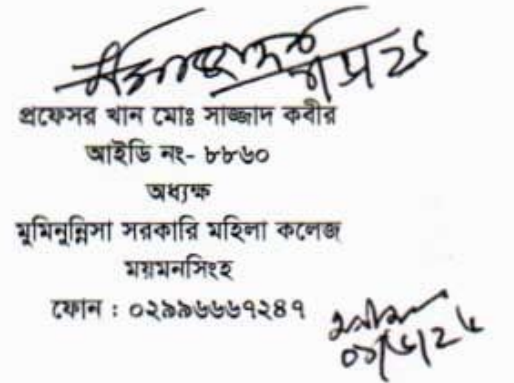 প্রফেসর খান মোঃ সাজ্জাদ কবীর
আইডি নং- ৮৮৬০
অধ্যক্ষ
মুমিনুন্নিসা সরকারি মহিলা কলেজ
ময়মনসিংহ
ফোন : ০২৯৯৬৬৬৭২৪৭